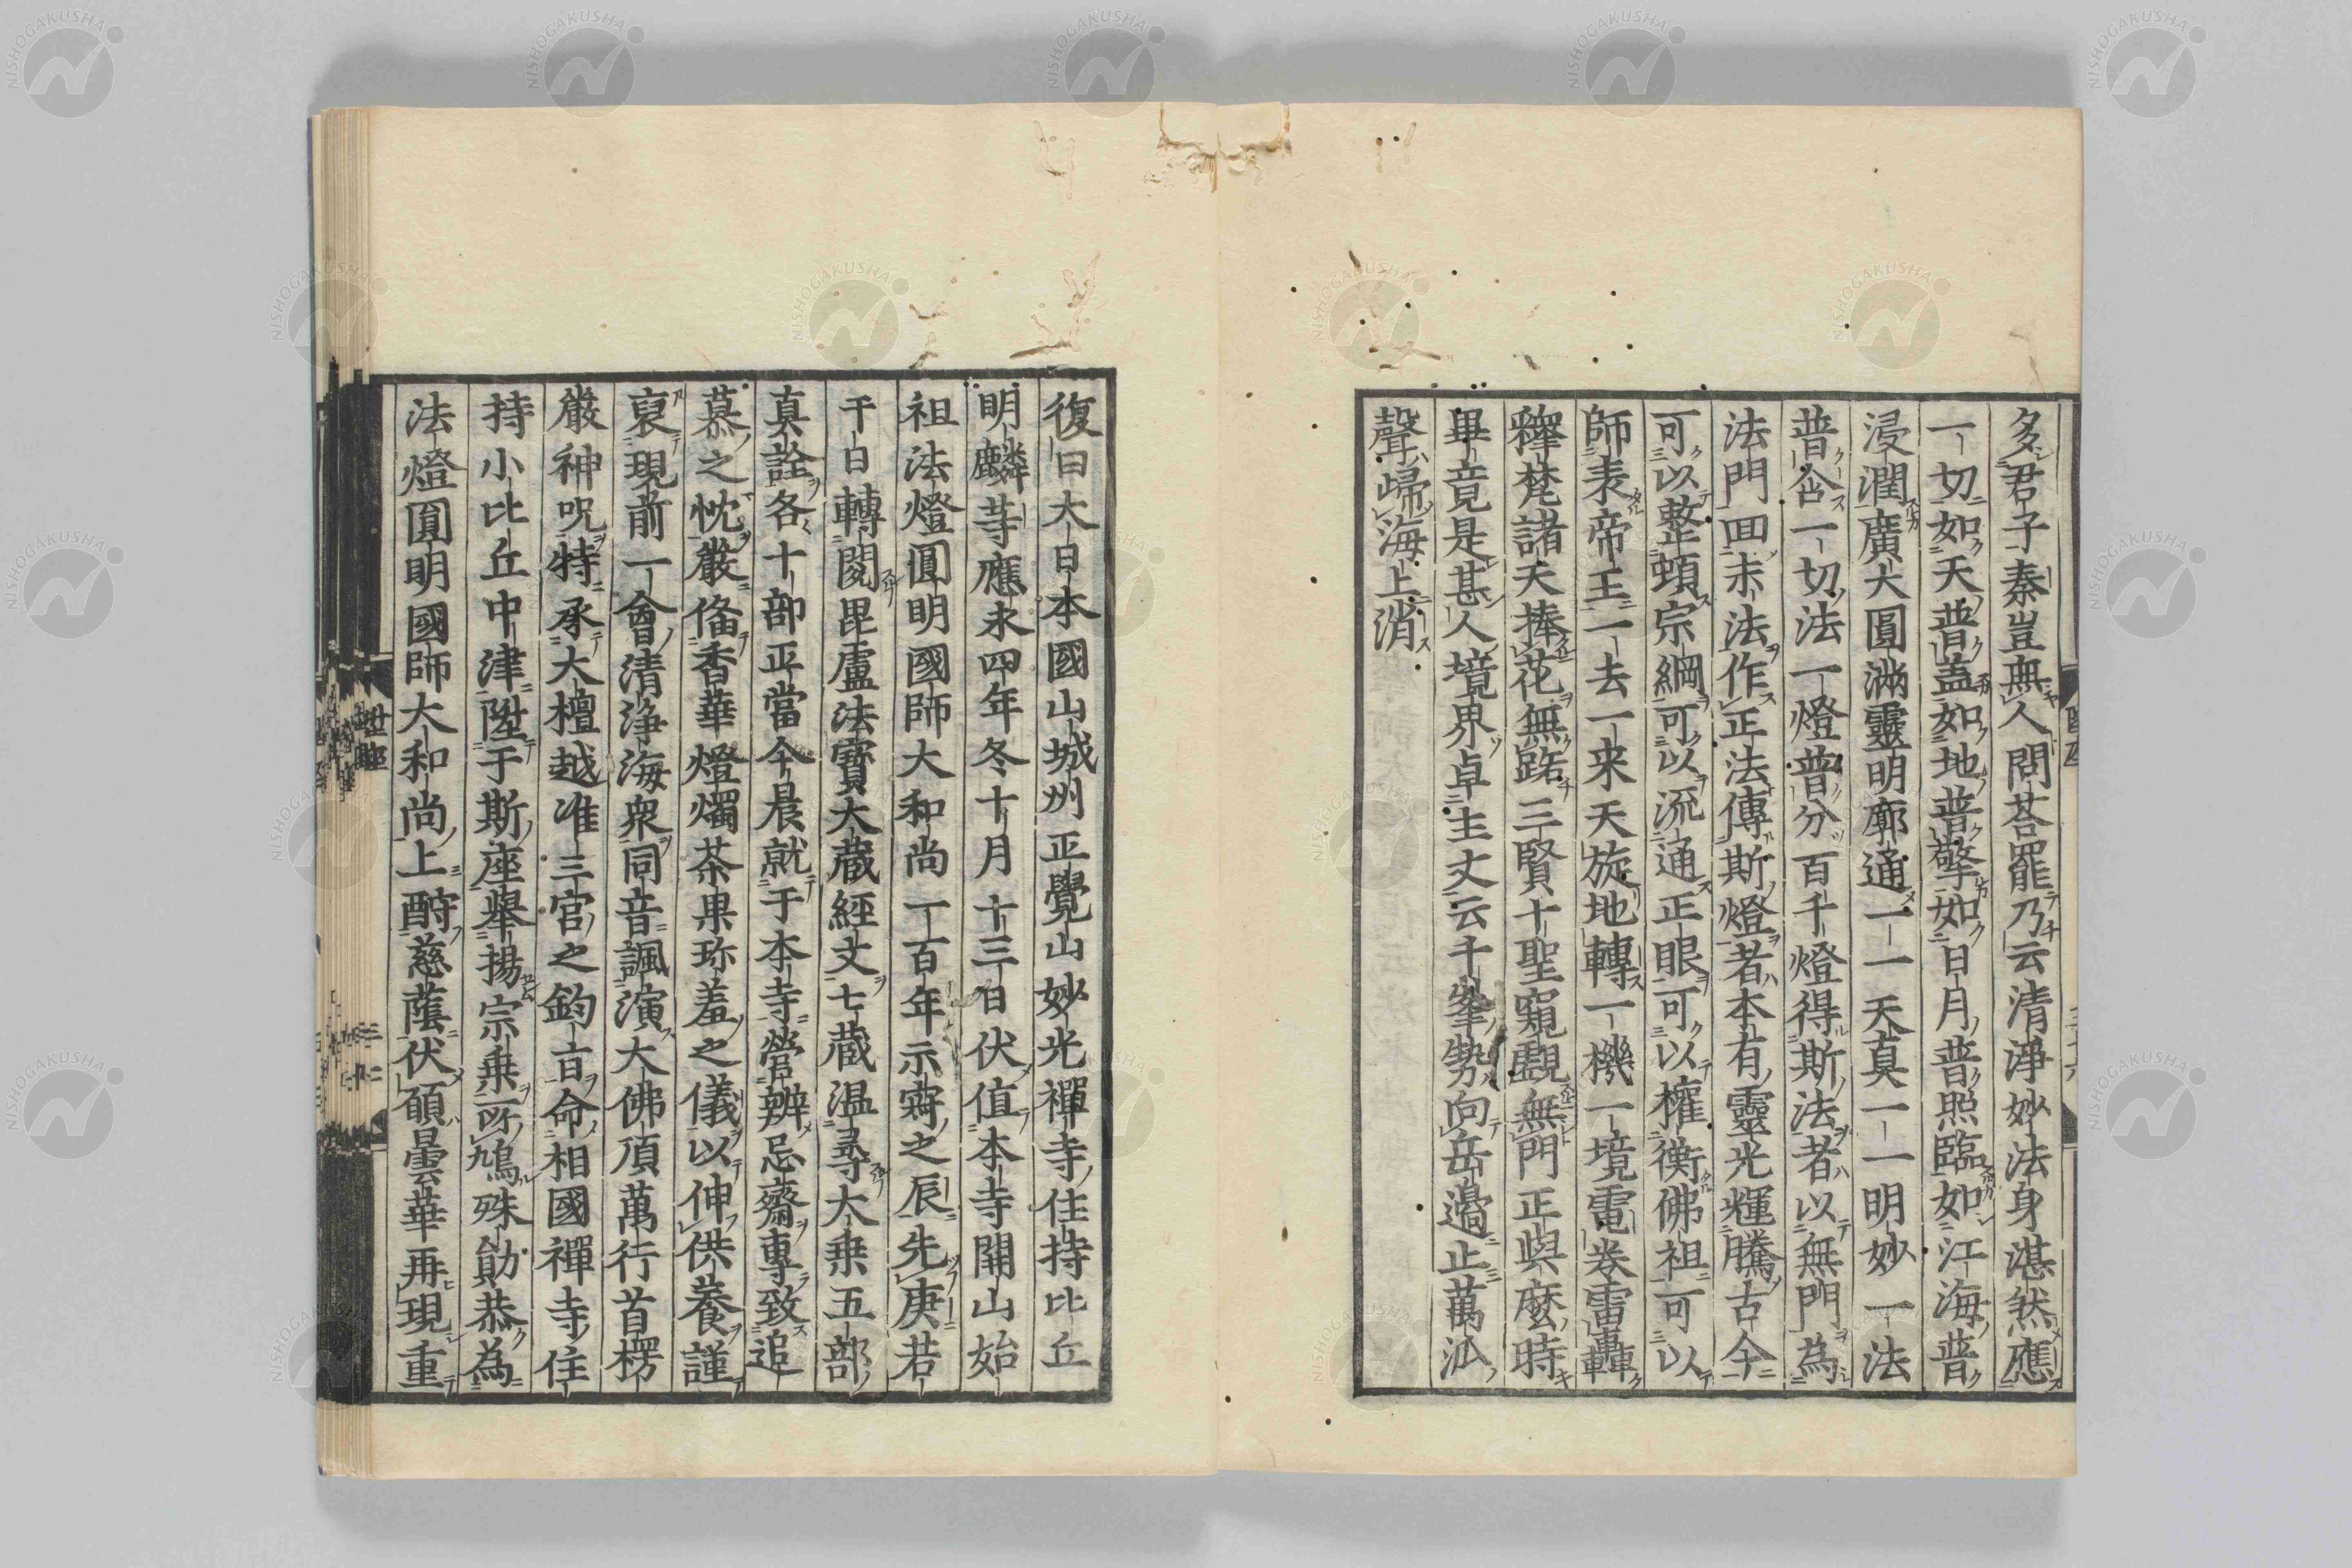 多君子秦豈無人問荅罷乃云清淨妙法身湛然應
一切如天普盖如地普擎如日月普照臨如江海普
浸潤廣大圓滿靈明廓通一一天真一一明妙一法
普含一切法一燈普分百千燈得斯法者以無門為
法門回末法作正法傳斯燈者本有靈光輝騰古今
可以整頓宗綱可以流通正眼可以權衡佛祖可以
師表帝王一去一来天旋地轉一機一境電巻雷轟
釋梵諸天捧花無路三賢十聖窺覰無門正與麼時
畢竟是甚人境界卓主丈云千峯勢向岳邉止萬派
聲歸海上消
復曰大日本國山城州正覺山妙光禪寺住持比丘
明麟等應永四年冬十月十三日伏值本寺開山始
祖法燈圓明國師大和尚一百年示寂之辰先庚若
干日轉閱毘盧法寳大蔵經文七蔵温尋大乗五部
真詮各十部正當今晨就于本寺營辨忌齋專致追
慕之忱嚴俻香華燈燭茶果珎羞之儀以伸供養謹
裒現前一會清淨海衆同音諷演大佛頂萬行首楞
嚴神呪特承大檀越准三宮之鈞㫖命相國禪寺住
持小比丘中津陞于斯座舉揚宗乗所鳩殊勛恭為
法燈圓明國師大和尚上酧慈蔭伏願曇華再現重